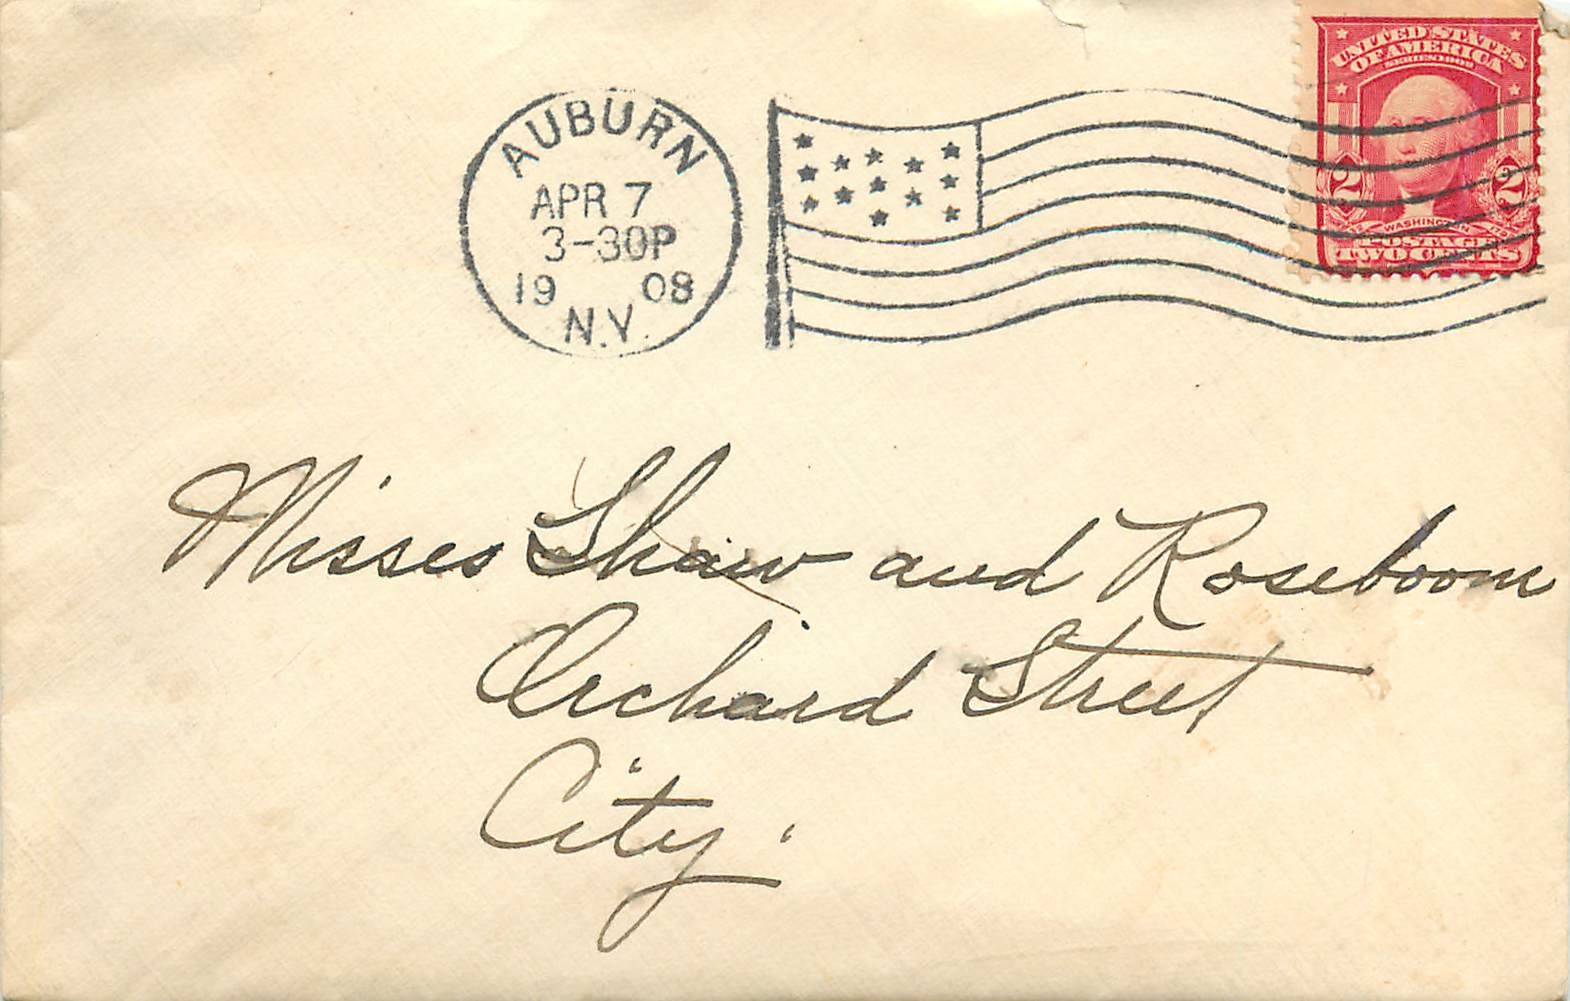 AUBURN
APR 7
3-30P
19 08
N.Y.
UNITED STATES
OF AMERICA
SERIES 1902
2 2
WASHINGTON
POSTAGE
TWO CENTS
Misses Shaw and Roseboom
Orchard Street
City.